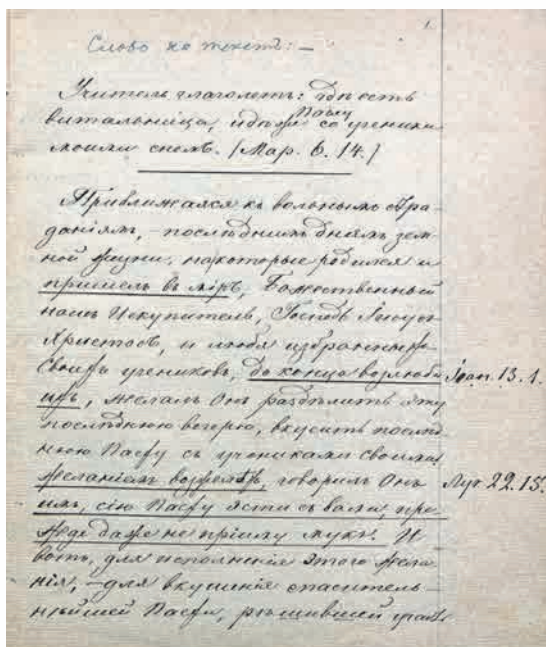 1.
Слово на текстъ: —
Учитель глаголетъ: гдѣ есть
Пасху
витальница, идѣже со ученики
моими снѣмъ. (Мар. 6. 14.)
Приближаясь къ вольнымъ стра-
даніямъ, – послѣднимъ днямъ зем-
ной жизни, на которые родился и
пришелъ въ міръ, Божественный
нашъ Искупитель, Господь Іисусъ
Христосъ, и любя избранныхъ
Своихъ учениковъ, до конца возлюби
ихъ, желалъ Онъ раздѣлить эту
послѣднюю вечерю, вкусить послѣд-
нюю Пасху съ учениками своими.
Желаніемъ возжелѣхъ, говорилъ Онъ
имъ, сію Пасху ясти съ вами, пре-
жде даже не пріиму мукъ. И
вотъ, для исполненія этого жела-
нія, – для вкушенія спаситель-
нѣйшей Пасхи, рѣшившей
Іоан. 13. 1.
Лук. 22. 15.